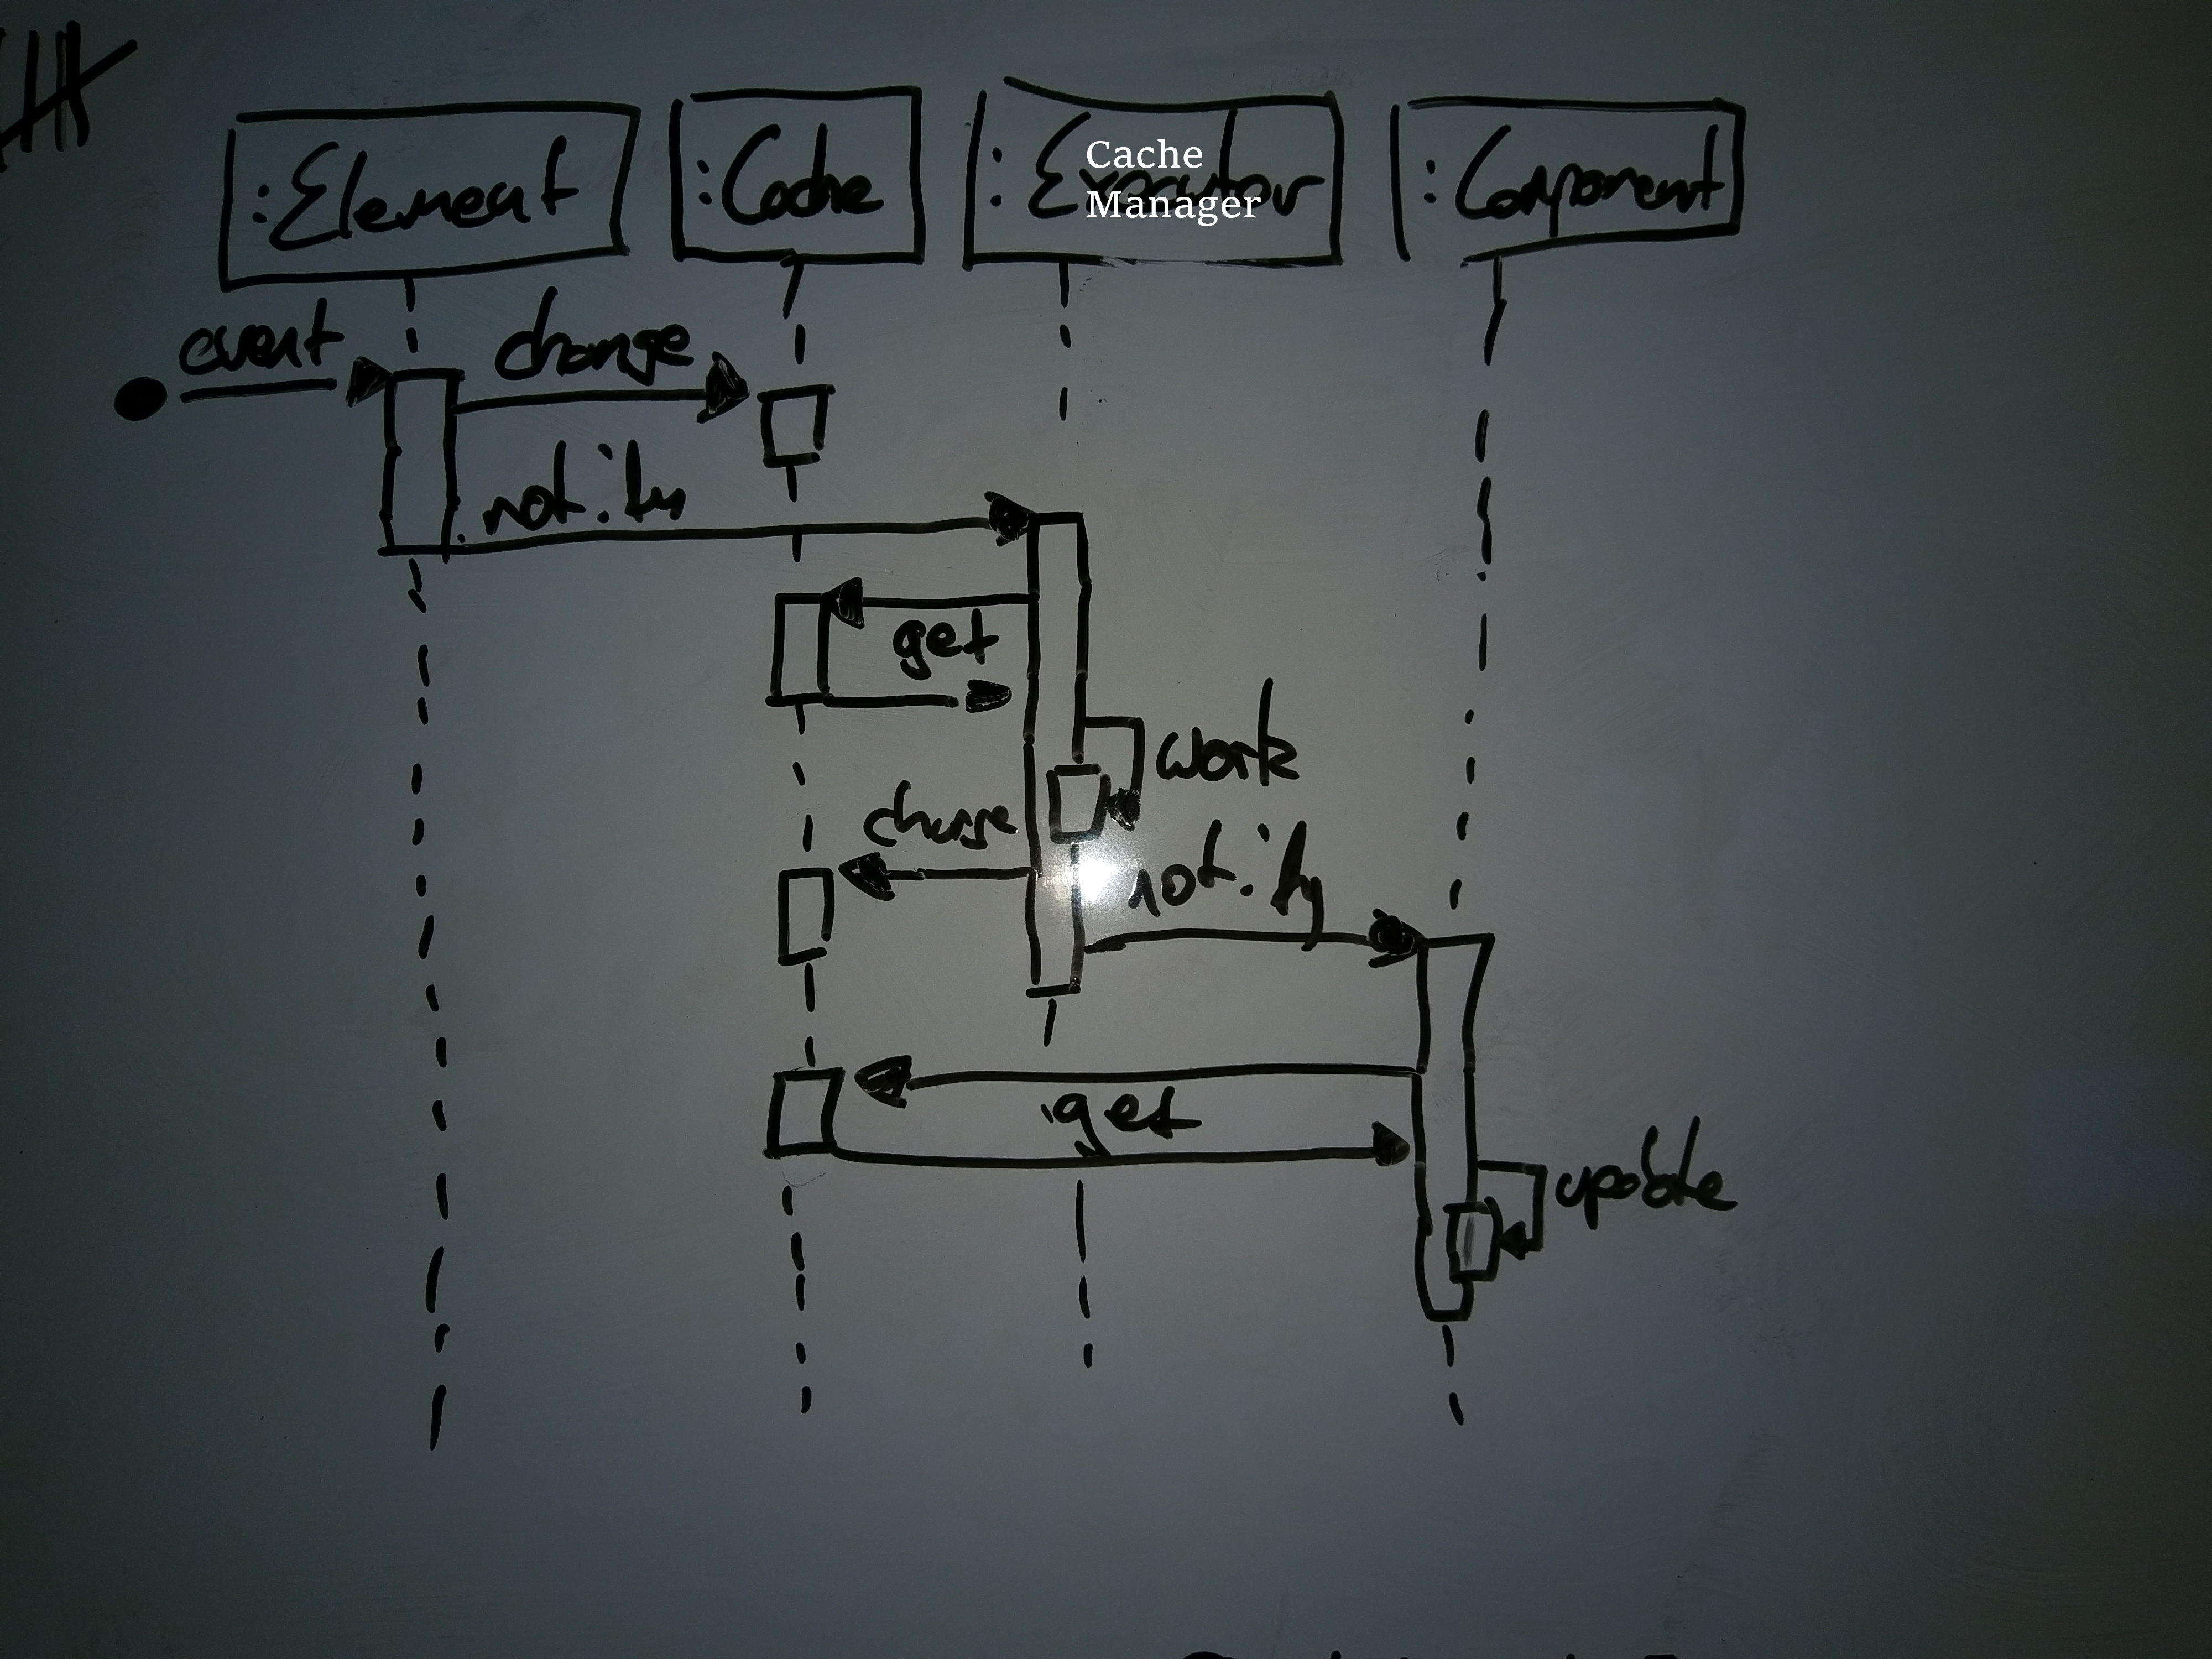 :Element
:Cache
:Executor
Cache
Manager
:Component
event
change
notify
get
work
change
notify
get
update